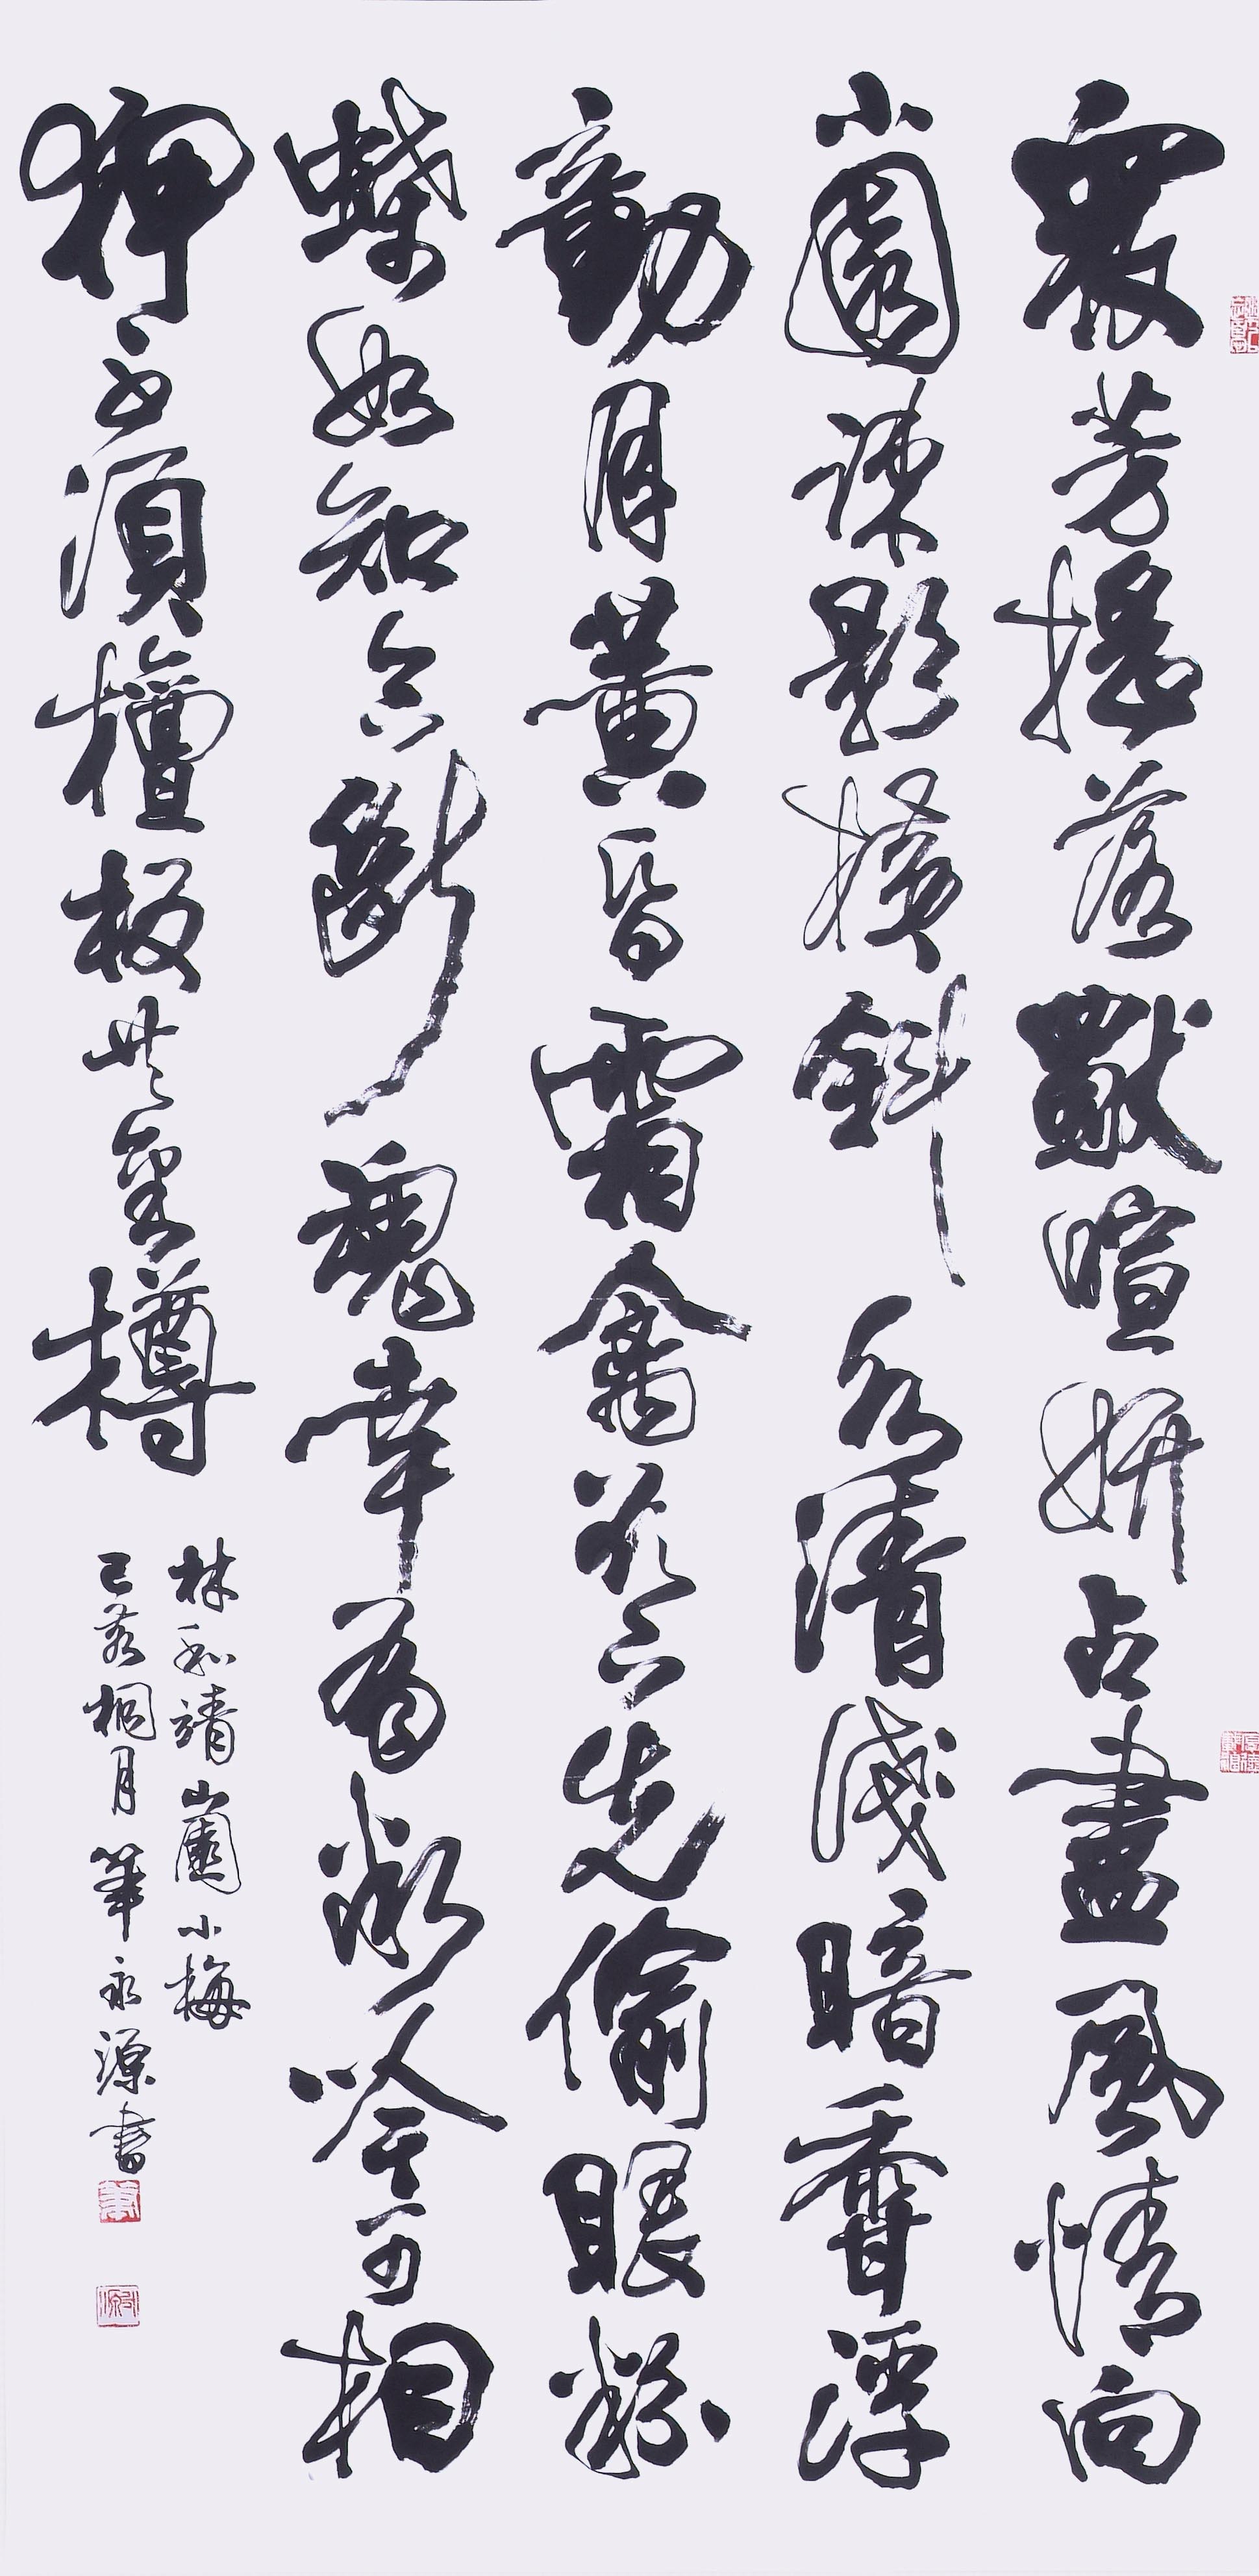 衆芳搖落獨暄妍占盡風情向
小園疎影橫斜水清淺暗香浮
動月黃昏霜禽欲下先偷眼粉
蝶如知合斷魂幸有微吟可相
狎不須檀板共金樽
林和靖山園小梅
己亥桐月 永源書